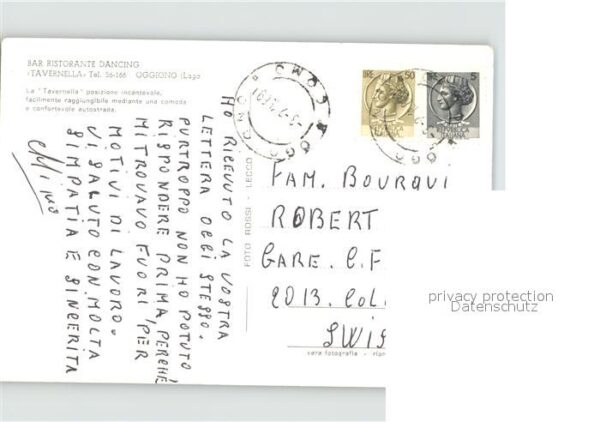 BAR RISTORANTE DANCING
«TAVERNELLA» Tel. 56-166 OGGIONO (Lago
La "Tavernella" posizione incantevole,
facilmente raggiungibile mediante una comoda
e confortevole autostrada.
HO RICEVUTO LA VOSTRA
LETTERA OGGI STESSO.
PURTROPPO NON HO POTUTO
RISPONDERE PRIMA, PERCHÉ
MI TROVAVO FUORI PER
MOTIVI DI LAVORO.
VI SALUTO CON MOLTA
SIMPATIA E SINCERITA
FOTO ROSSI - LECCO
LIRE 50
5
OGGIONO COMO
FAM. BOURQUI
ROBERT
GARE. C.F
2013. COL
SWIS
vera fotografia - 
privacy protection
Datenschutz